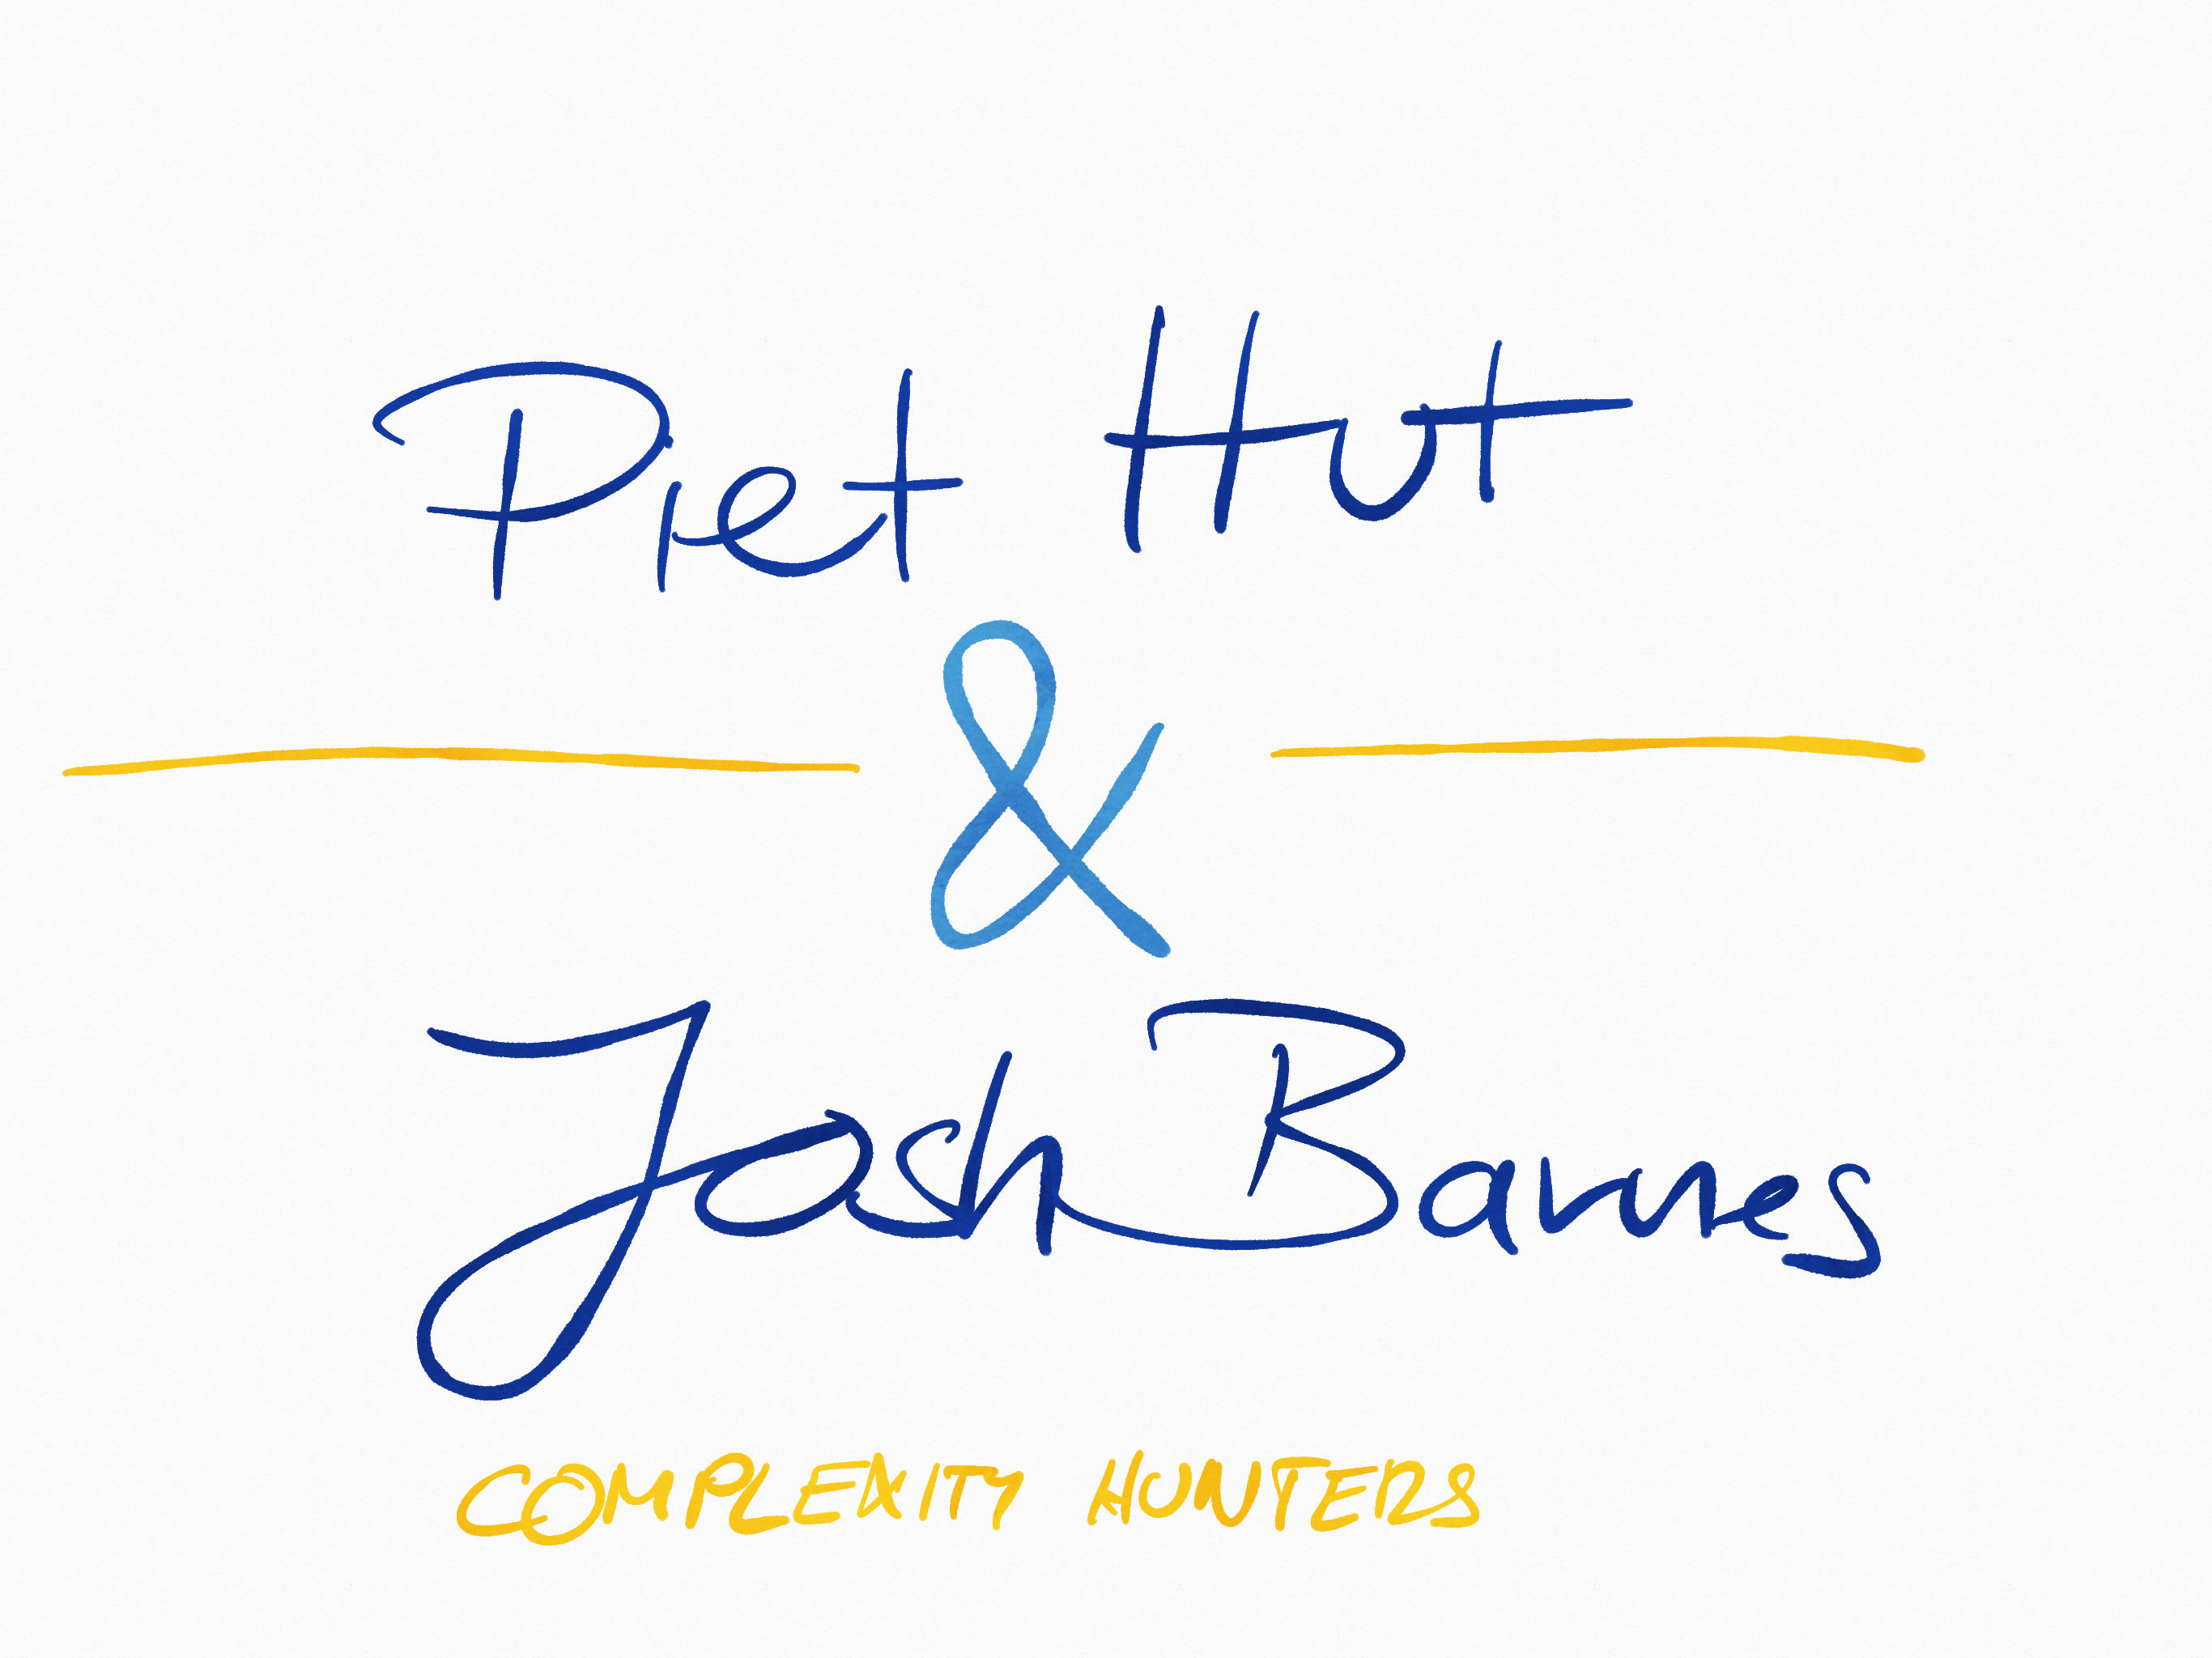 Piet Hut
&
Josh Barnes
COMPLEXITY HUNTERS